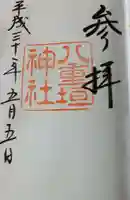 参拝
八重垣
神社
平成三十一年五月五日